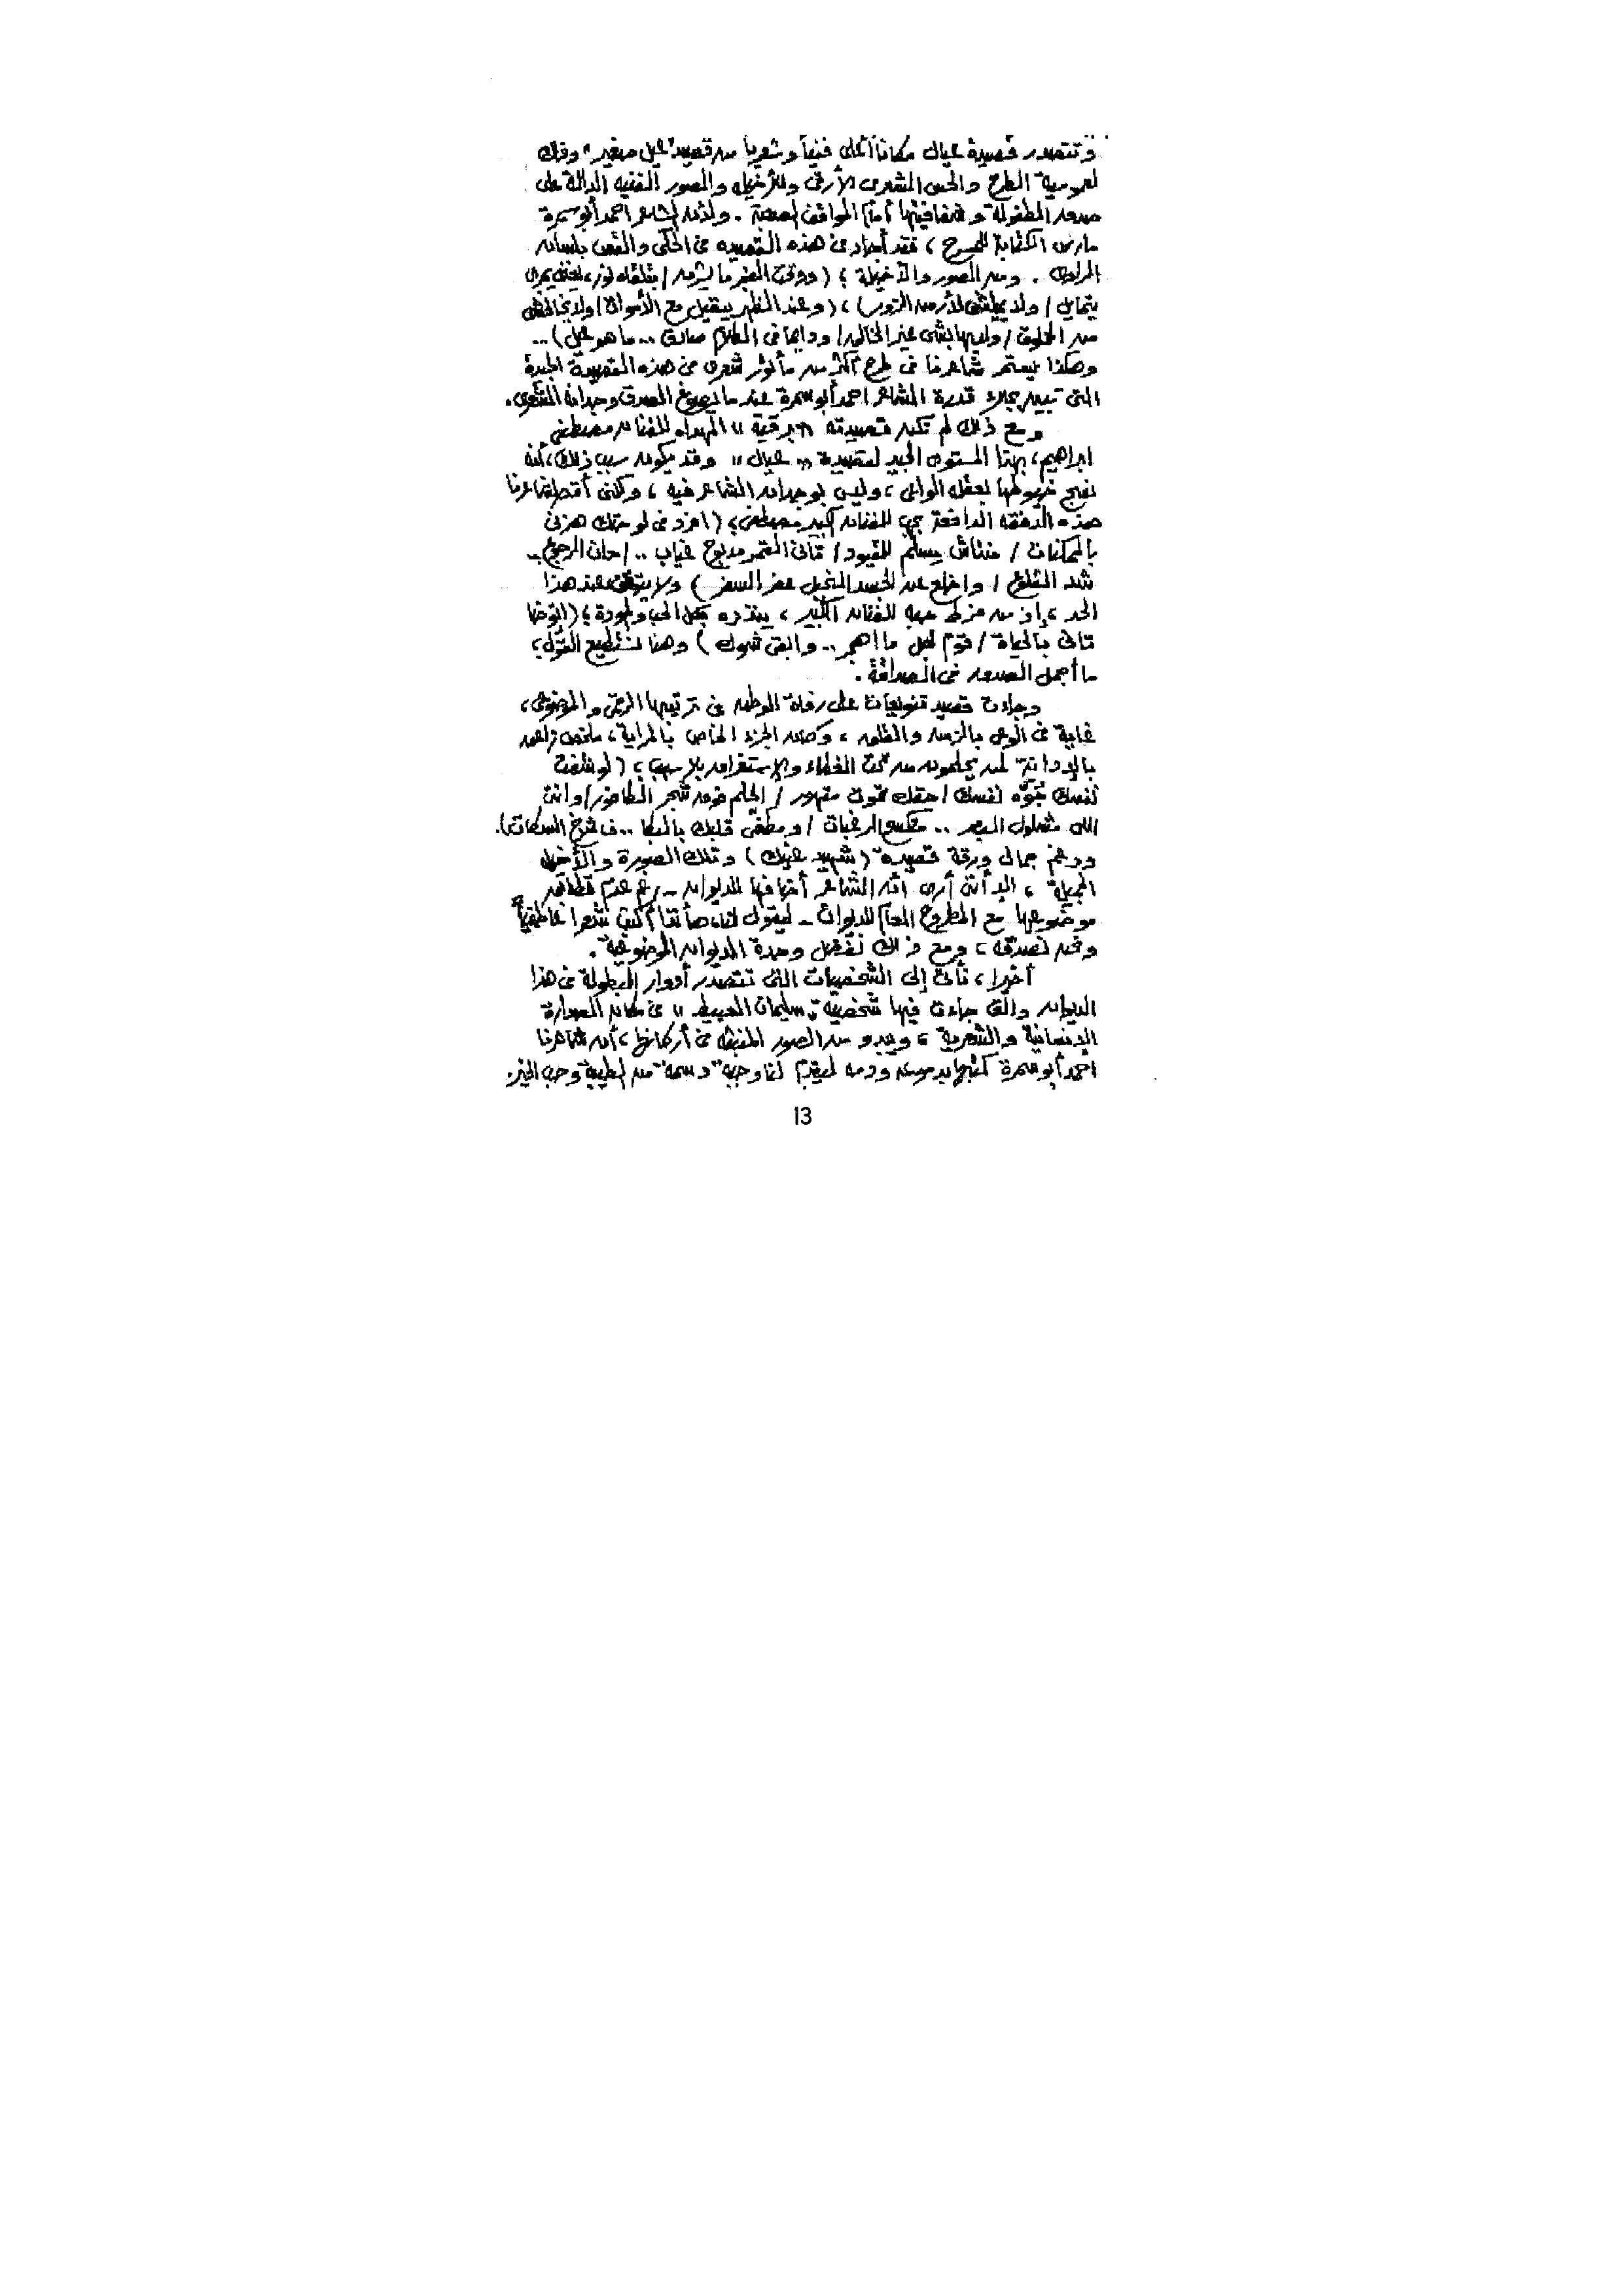 وتتصدر قصيدة عيال مكاناً أعلى فنياً وشعرياً من قصيدة "عيل صغير" وذلك
لعمومية الطرح والحس الشعرى الأرقى والأخيلة والصور الفنية الدالة على
صدق الطفولة وشفافيتها أمام المواقف الصعبة . ولأن الشاعر احمد أبو سمرة
مارس الكتابة للمسرح ، فقد أجاد فى هذه القصيدة فى الحكى والقص بلسان
الراوى . ومن الصور والأخيلة ؛ (ووقت الفجر ما يشرق / بتلقاه نور
يتمايل / ولا يطفى لأرض الزور) ، (وعند الظهر بيقيل مع الأموات / ولا يخافشى
من الخلوق / ولا بشى غير الخالق / ودايما فى الكلام صادق .. ما هو عيل) ..
وهكذا يستمر شاعرنا فى طرح أكثر من مأثور شعرى فى هذه القصيدة الجيدة
التى تبين بجلاء قدرة الشاعر احمد أبو سمرة عندما يصوغ الصدق وجدانه الشعرى .
ومع ذلك لم تكن قصيدته « برقية » المهداه للفنان مصطفى
ابراهيم ، بهذا المستوى الجيد لقصيدة « عيال » وقد يكون سبب ذلك ، أنه
نسج خيوطها بعقله الواعى ، وليس بوجدان الشاعر فيه ، ولكنى أقتطف لشاعرنا
هذه الدفقة للفنان الكبير مصطفى ؛ (افرد فى لوحتك هزنى
بالممكنات / منتاش بيسلم للقيود / تانى القمر مدبوح غياب .. / حان الرجوع ..
شد القلوع / واخلع عن الجسد النحيل عفر السفر) ولا يتوقف عند هذا
الحد ، إذ من فرط حبه للفنان الكبير ، ينذره بكل الحب والمودة ؛ (اتوضا
تانى بالحياة / قوم لجل ما اهجر .. وابقى شوك) وهنا نستطيع القول ؛
ما أجمل الصدق فى الصداقة .
وجاءت قصيدة تنويعات على رفات الوطن فى ترتيبها الرقمى والموضوعى ،
غاية فى الوعى بالزمن والظلم ، وكان الجزء الخاص بالمراية ،
بالإدانة لمن يحلمون من تحت الغطاء والاستغراق بلا سبب ؛ (لو شفت
نفسك تتوه نفسك / حقك تموت مقهور / الحلم فوق شجر الكافور / وانت
اللى مشلول البصر .. متكسح الرغبات / ومطفى قلبك بالبكا .. فاشرخ السكات) .
ورغم جمال ورقة قصيدة (شهيد عنيك) وتلك الصورة والأخيلة
الجميلة ، إلا أننى أرى أن الشاعر أضافها للديوان - رغم عدم تطابق
موضوعها مع المطروح العام للديوان - ليقول لنا ها أنذا أكتب شعراً عاطفياً
ونحن نصدقه ، ومع ذلك نفضل وحدة الديوان الموضوعية .
أخيرا ، نأتى إلى الشخصيات التى تتصدر أدوار البطولة فى هذا
الديوان والتى جاءت فيها شخصية « سليمان العبيط » فى مكان الصدارة
الإنسانية والشعرية ، ويبدو من الصور المنبثة فى أركانها ، أن شاعرنا
احمد أبو سمرة كتبها بدموعه ودمه ليقدم لنا وجبة دسمة من الطيبة وحب الخير .
13